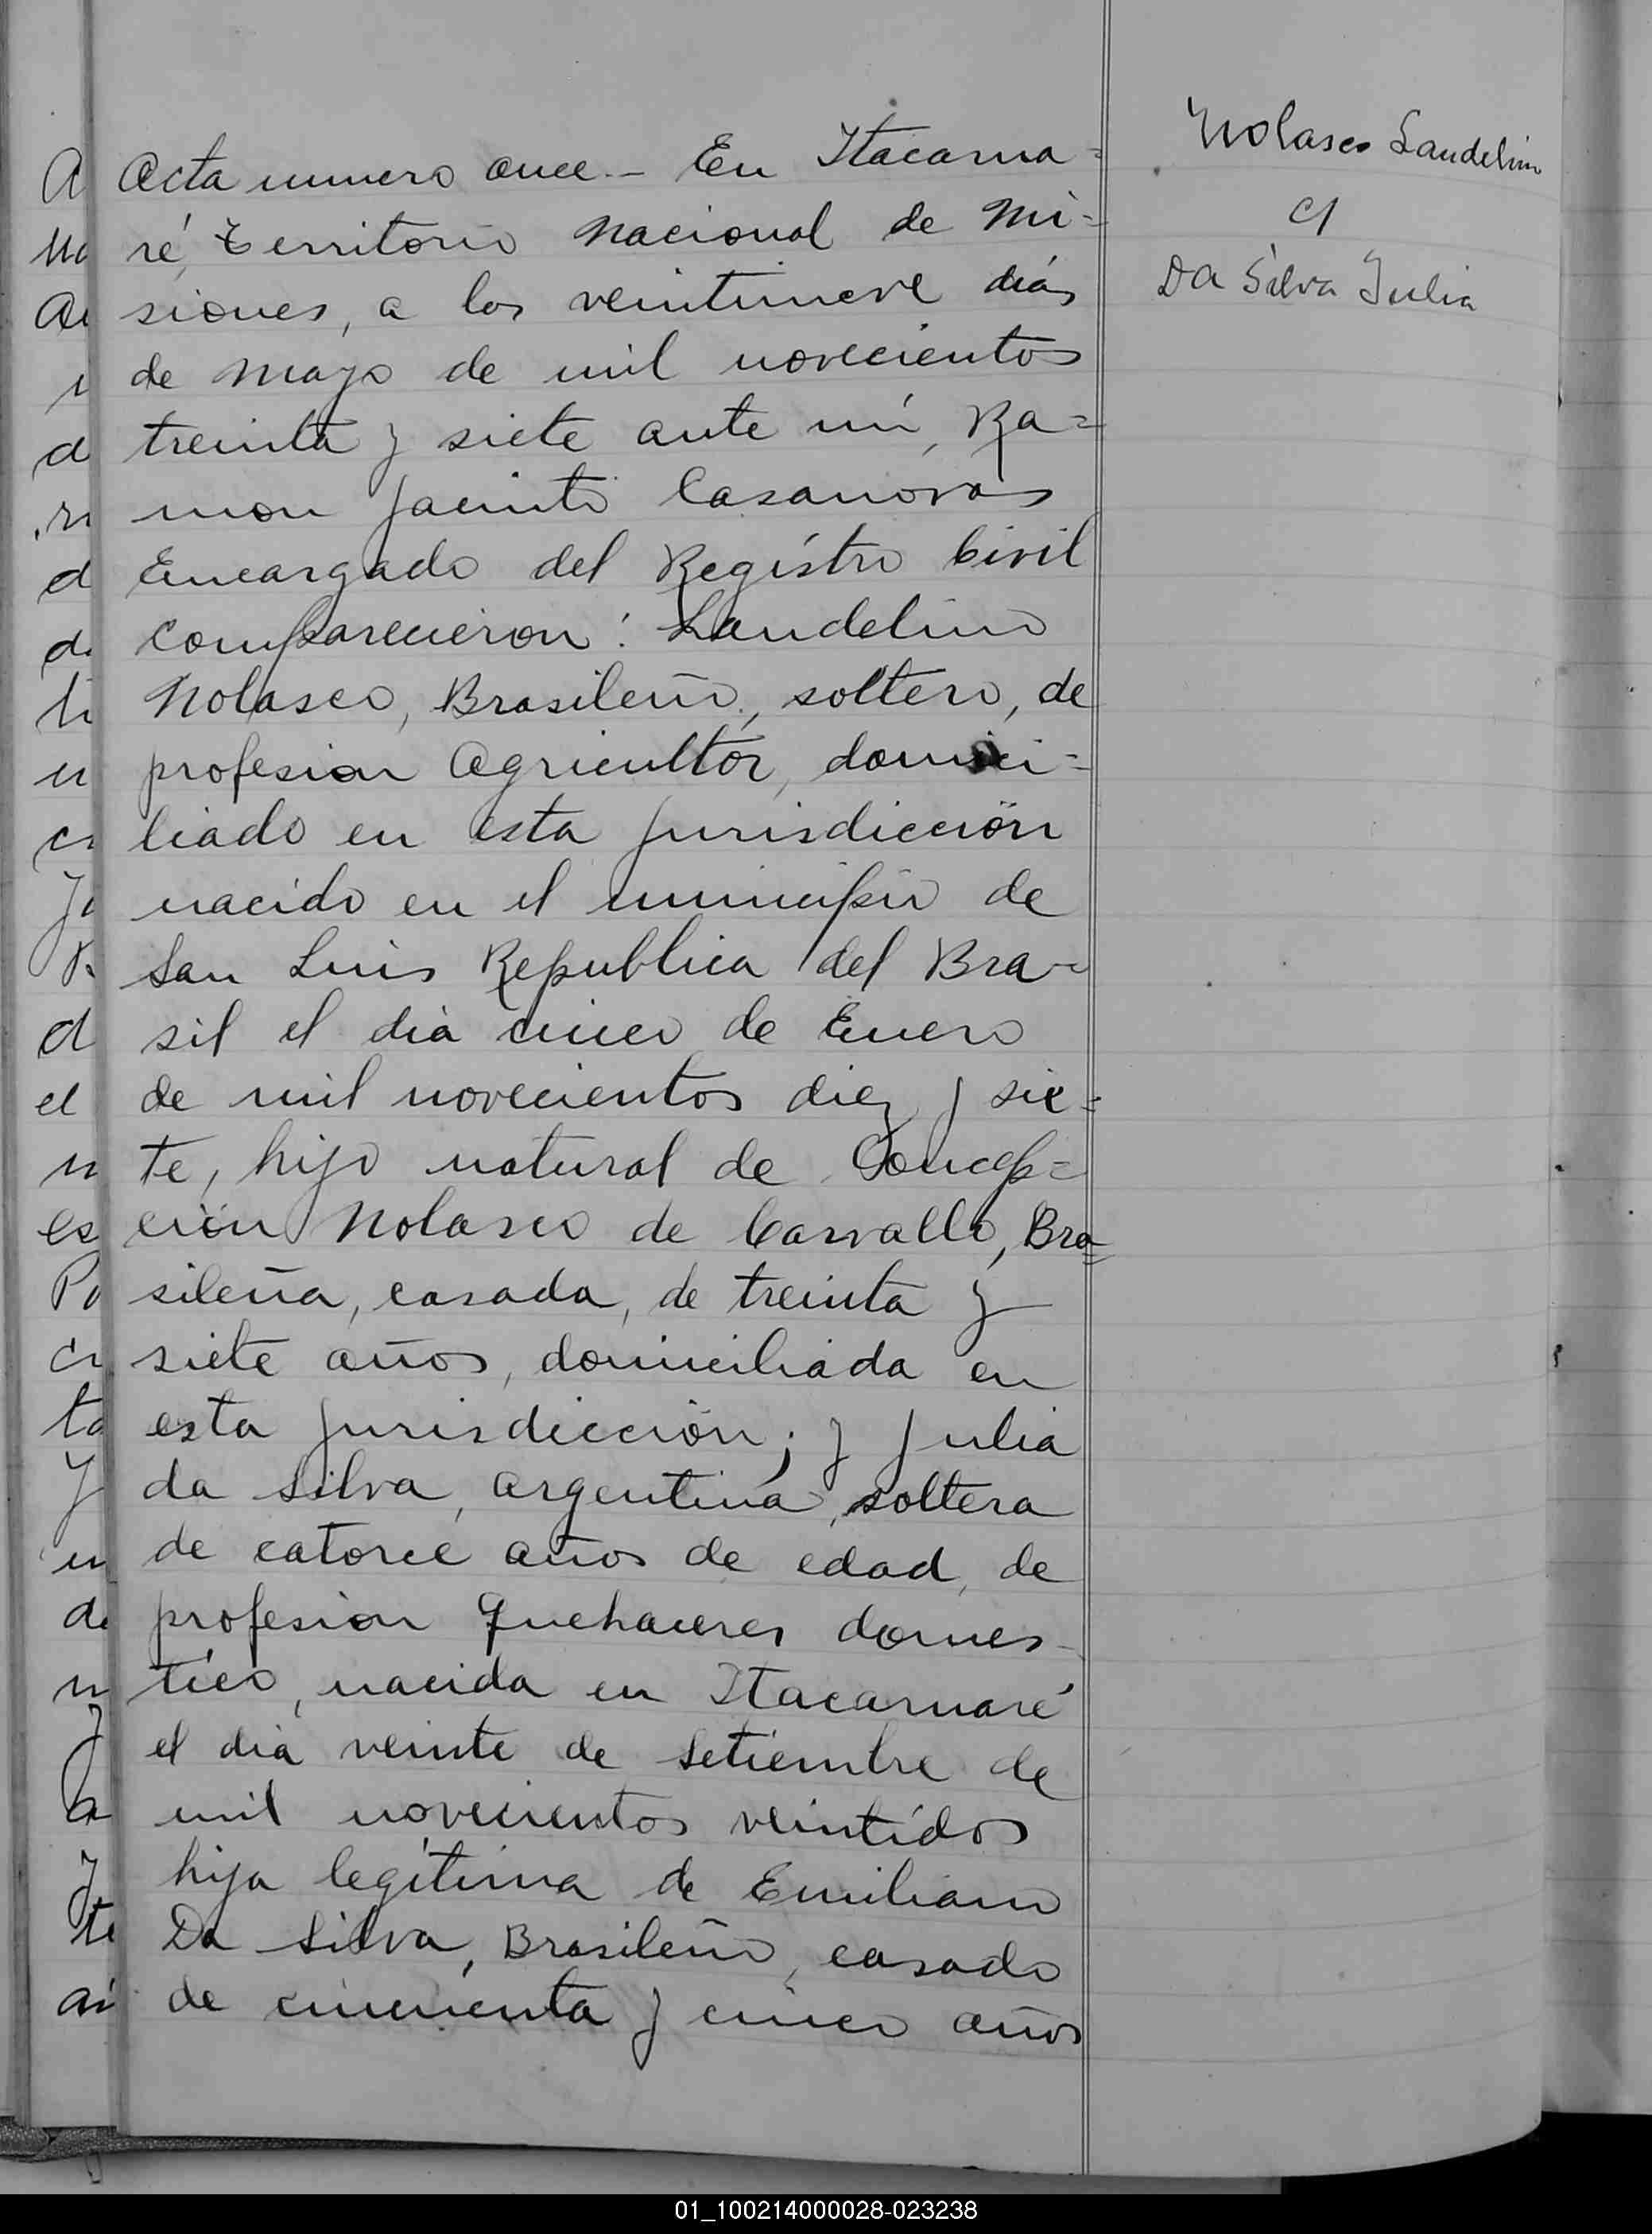 Acta numero once.- En Itacarua=
ré, Territorio Nacional de Mi=
siones, a los veintinueve dias
de Mayo de mil novecientos
treinta y siete ante mi, Ra=
mon Jacinto Casanovas
Encargado del Registro Civil
Comparecieron: Landelino
Nolasco, Brasileño, soltero, de
profesion Agricultor, domici=
liado en esta jurisdicción
nacido en el municipio de
San Luis Republica del Bra-
sil el dia cinco de Enero
de mil novecientos diez y sie=
te, hijo natural de Concep=
ción Nolasco de Carvallo, Bra=
sileña, casada, de treinta y
siete años, domiciliada en
esta jurisdicción; y Julia
da Silva, argentina, soltera
de catorce años de edad, de
profesion quehaceres domes-
tico, nacida en Itacaruaré
el dia veinte de Setiembre de
mil novecientos veintidos
hija legítima de Emiliano
Da Silva, Brasileño, casado
de cincuenta y cinco años
Nolasco Landelino
c/
Da Silva Julia
01_100214000028-023238